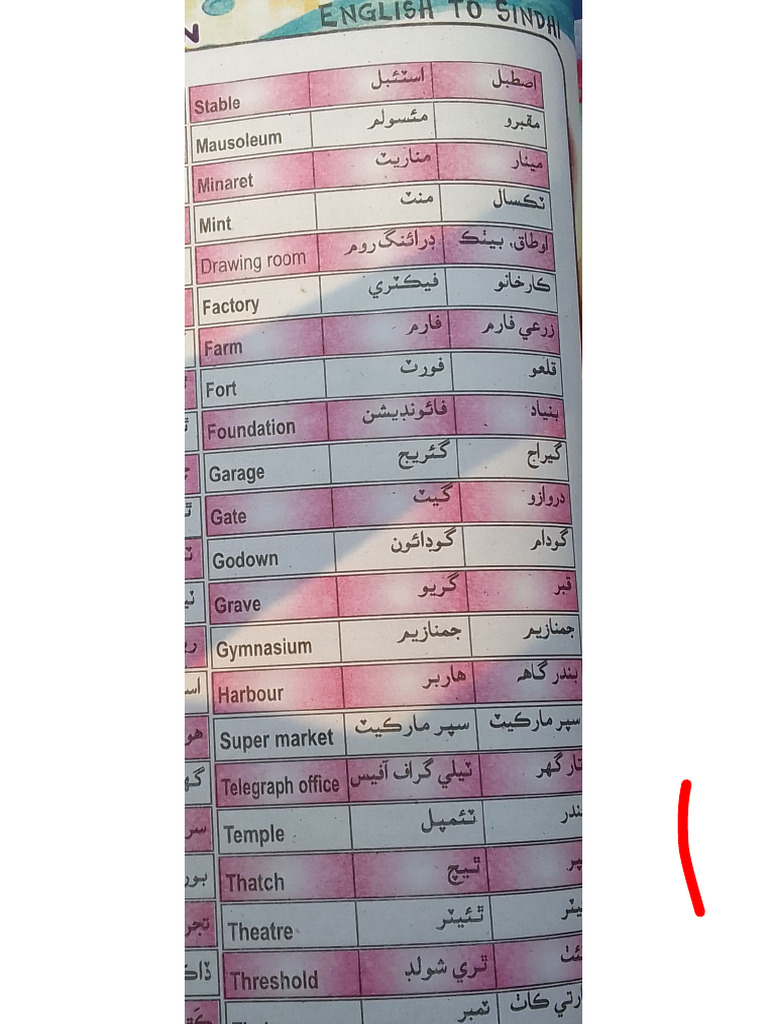 ENGLISH TO SINDHI
N
Stable اسٽئبل اصطبل
Mausoleum مئسولم مقبرو
Minaret مناريٽ مينار
Mint منٽ ٽڪسال
Drawing room ڊرائنگ روم اوطاق، بيٺڪ
Factory فيڪٽري ڪارخانو
Farm فارم زرعي فارم
Fort فورٽ قلعو
Foundation فائونڊيشن بنياد
Garage گئريج گيراج
Gate گيٽ دروازو
Godown گوڊائون گودام
Grave گريو قبر
Gymnasium جمنازيم جمنازيم
Harbour هاربر بندر گاهه
Super market سپر مارڪيٽ سپر مارڪيٽ
Telegraph office ٽيلي گراف آفيس تار گهر
Temple ٽئمپل
Thatch ٿيچ
Theatre ٿئيٽر
Threshold ٿري شولڊ
ٽمبر